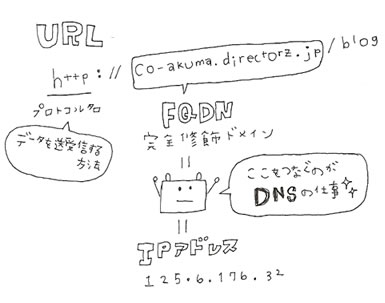 URL
http://co-akuma.directorz.jp/blog
プロトコル名
データを送受信する
方法
FQDN
完全修飾ドメイン
ここをつなぐのが
DNSの仕事
IPアドレス
125.6.176.32